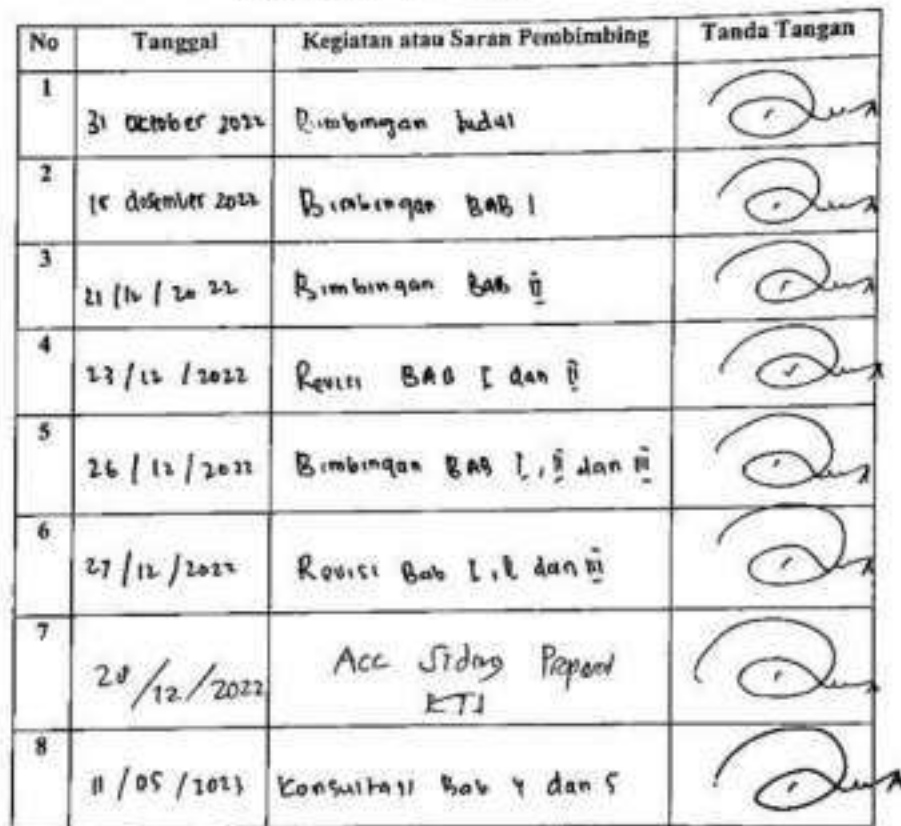 No Tanggal Kegiatan atau Saran Pembimbing Tanda Tangan
1
31 October 2022 Bimbingan Judul
2
desember 2022 Bimbingan BAB I
3
21/12/2022 Bimbingan BAB II
4
23/12/2022 Revisi BAB I dan II
5
26/12/2022 Bimbingan BAB I, II dan III
6
27/12/2022 Revisi Bab I, II dan III
7
28/12/2022 Acc Sidang Proposal
KTI
8
11/05/2023 Konsultasi Bab 4 dan 5